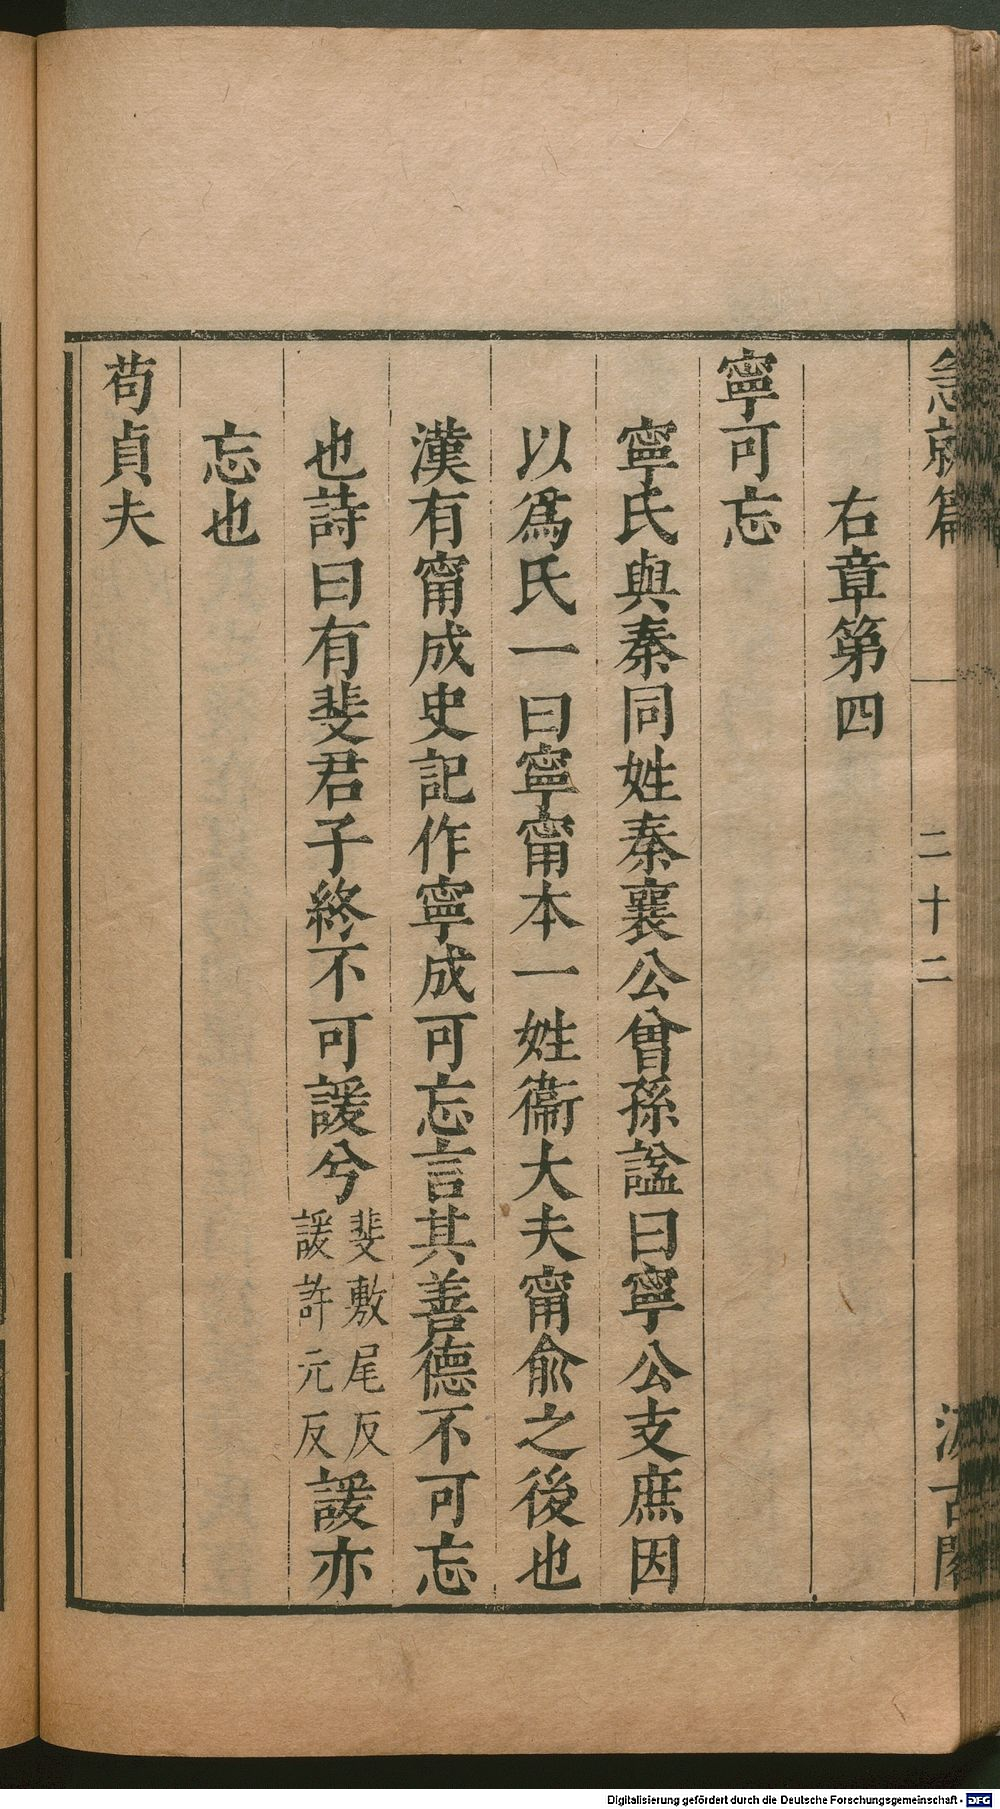 急就篇 二十二 汲古閣
右章第四
寧可忘
寧氏與秦同姓秦襄公曾孫謚曰寧公支庶因
以爲氏一曰寧甯本一姓衞大夫甯俞之後也
漢有甯成史記作寧成可忘言其善德不可忘
也詩曰有斐君子終不可諼兮斐敷尾反諼許元反諼亦
忘也
苟貞夫
Digitalisierung gefördert durch die Deutsche Forschungsgemeinschaft - DFG